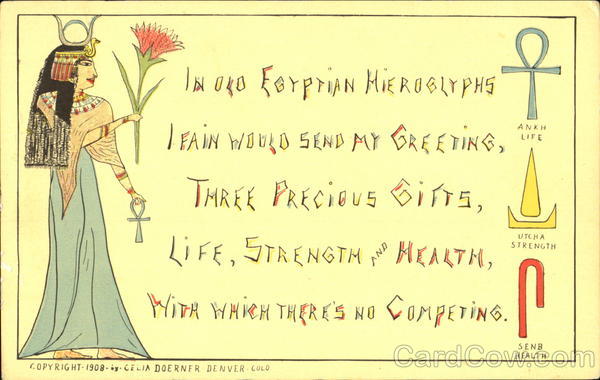 In old Egyptian Hieroglyphs
I fain would send my Greeting,
Three Precious Gifts,
Life, Strength and Health,
With which there's no Competing.
ANKH
LIFE
UTCHA
STRENGTH
SENB
HEALTH
COPYRIGHT-1908-by-CELIA DOERNER DENVER COLO
CardCow.com